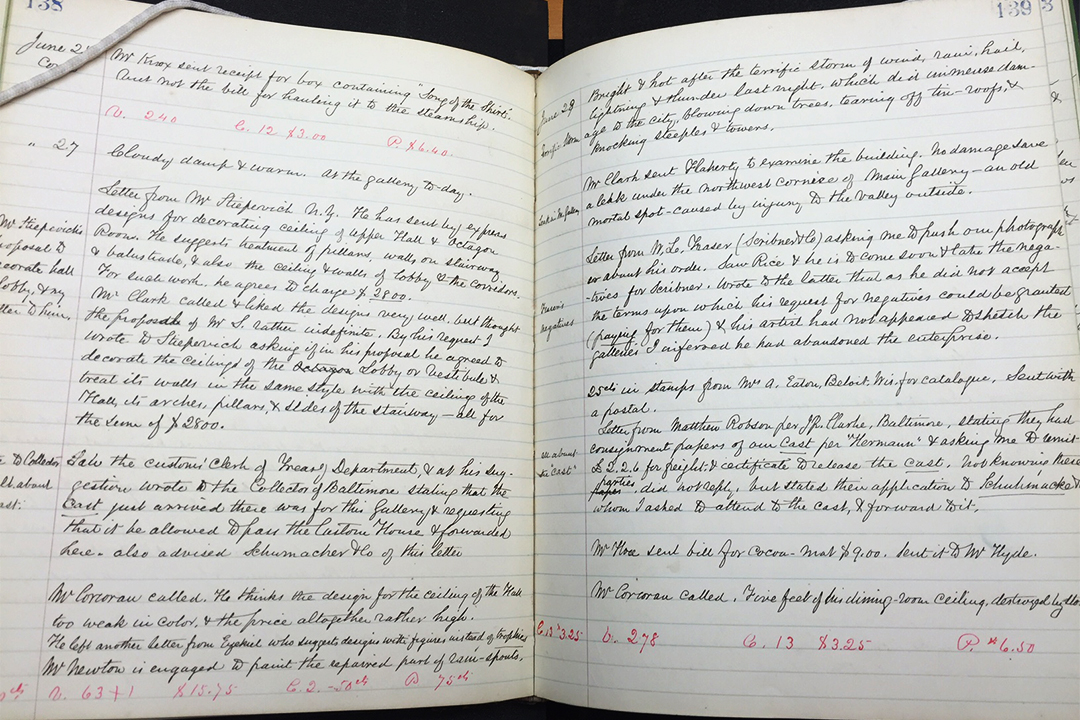 138
June 2
Mr Knox sent receipt for box containing "Song of the Shirt".
and not the bill for hauling it to the steamship.
V. 240 C. 12 $3.00 P. $6.40.
" 27 Cloudy damp & warm. At the gallery to-day.
Letter from Mr Stiepevich N.Y. He has sent by express
designs for decorating ceiling of upper Hall & Octagon
Room. He suggests treatment of pillars, walls, on stairway
& balustrade, & also the ceiling & walls of lobby & the corridors.
For such work, he agrees to charge $2800.
Mr Clark called & liked the designs very well, but thought
the proposals of Mr S. rather indefinite. By his request I
wrote to Stiepevich asking if in his proposal he agreed to
decorate the ceilings of the Octagon Lobby or Vestibule &
treat its walls in the same style with the ceiling of the
Hall, its arches, pillars, & sides of the stairway — all for
the sum of $2800.
Mr Stiepevich's
oposal to
ecorate hall
lobby, & my
tter to him.
Saw the customs' clerk of Treas'y Department, & at his sug-
gestion wrote to the Collector of Baltimore stating that the
Cast just arrived there was for this Gallery, & requesting
that it be allowed to pass the Custom House & forwarded
here. also advised Schumacher & Co of this letter
to Collector
about
ast.
Mr Corcoran called. He thinks the design for the ceiling of the Hall
too weak in color, & the price altogether rather high.
He left another letter from Ezekiel who suggests designs with figures instead of trophies
Mr Newton is engaged to paint the repaired part of rain-spouts.
V. 63+1 $15.75 C. 2. 50cts P 75cts
139
June 29 Bright & hot after the terrific storm of wind, rain, hail,
lightning & thunder last night, which did immense dam-
age to the city, blowing down trees, tearing off tin-roofs, &
knocking steeples & towers.
Terrific Storm
Mr Clark sent Flaherty to examine the building. No damage save
a leak under the northwest cornice of Main Gallery — an old
mortal spot — caused by injury to the valley outside.
Leak in M. Gallery
Letter from W. Le. Fraser (Scribner & Co) asking me to push our photograph-
er about his order. Saw Rice & he is to come soon & take the nega-
tives for Scribner. Wrote to the latter that as he did not accept
the terms upon which his request for negatives could be granted
(paying for them) & his artist had not appeared to sketch the
galleries I inferred he had abandoned the enterprise.
negatives
25cts in stamps from Mrs A. Eaton, Beloit, Wis. for catalogue. Sent with
a postal.
Letter from Matthew Robson per J.P. Clarke, Baltimore, stating they had
consignment papers of our Cast per "Hermann" & asking me to remit
£2.2.6 for freight & certificate to release the cast. Not knowing these
parties did not reply, but stated their application to Schuhmacker
whom I asked to attend to the cast, & forward to it.
about
the Cast"
Mr Hoe sent bill for cocoa-mat $9.00. Sent it to Mr Hyde.
Mr Corcoran called. Five feet of his dining-room ceiling, destroyed by
C. 13 $3.25 V. 278 C. 13 $3.25 P. $6.50